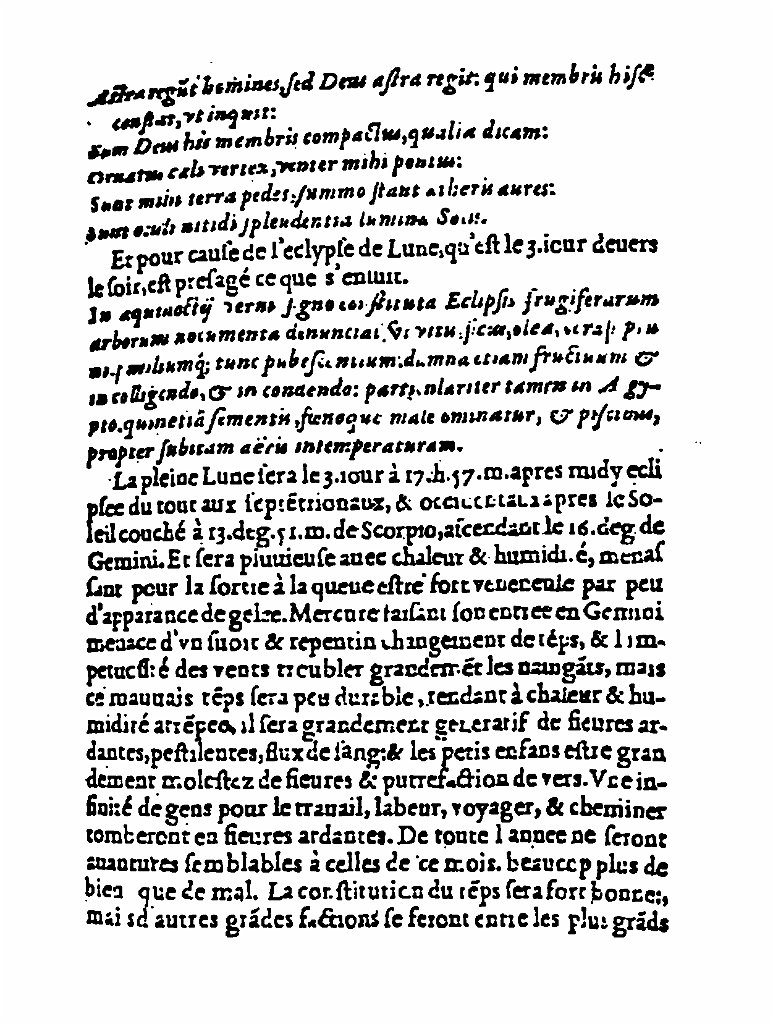 Astra regūt homines, sed Deus astra regit: qui membris hisce
constat, vt inquit:
Sum Deus his membris compactus, qualia dicam:
Ornatus cæli vertex, venter mihi pontus:
Sunt mihi terra pedes, summo stant ætheris aures:
Sunt oculi nitidi splendentia lumina Solis.
Et pour cause de l'eclypse de Lune, qu'est le 3. iour deuers
le soir, est presagé ce que s'ensuit.
In æquinoctij verni signo constituta Eclipsis frugiferarum
arborum nocumenta denunciat, Vt vitis, ficus, olea,
tunc pubescentium: damna etiam fructuum &
in colligendo, & in condendo: particulariter tamen in Ægy-
pto. quinetiā sementis, fœnoque male ominatur, & piscibus,
propter subitam aëris intemperaturam.
La pleine Lune sera le 3. iour à 17. h. 57. m. apres midy ecli
psee du tout aux septētrionaux, & occidentaux apres le So-
leil couché à 13. deg. 51. m. de Scorpio, ascendant le 16. deg de
Gemini. Et sera pluuieuse auec chaleur & humidité, menas
sant pour la sortie à la queue estre fort veneneuse par peu
d'apparance de gelee. Mercure faisant son entree en Gemini
menace d'vn subit & repentin changement de tēps, & l'im-
petuosité des vents troubler grandemēt les nauigāts, mais
ce mauuais tēps sera peu durable, tendant à chaleur & hu-
midité attēpee, il sera grandement generatif de fieures ar-
dantes, pestilentes, flux de sang: & les petis enfans estre gran
dement molestez de fieures & putrefaction de vers. Vne in-
finité de gens pour le trauail, labeur, voyager, & cheminer
tomberont en fieures ardantes. De toute l'annee ne seront
auantures semblables à celles de ce mois. beaucop plus de
bien que de mal. La constitution du tēps sera fort bonne:,
mais d'autres grādes factions se feront entre les plus grāds